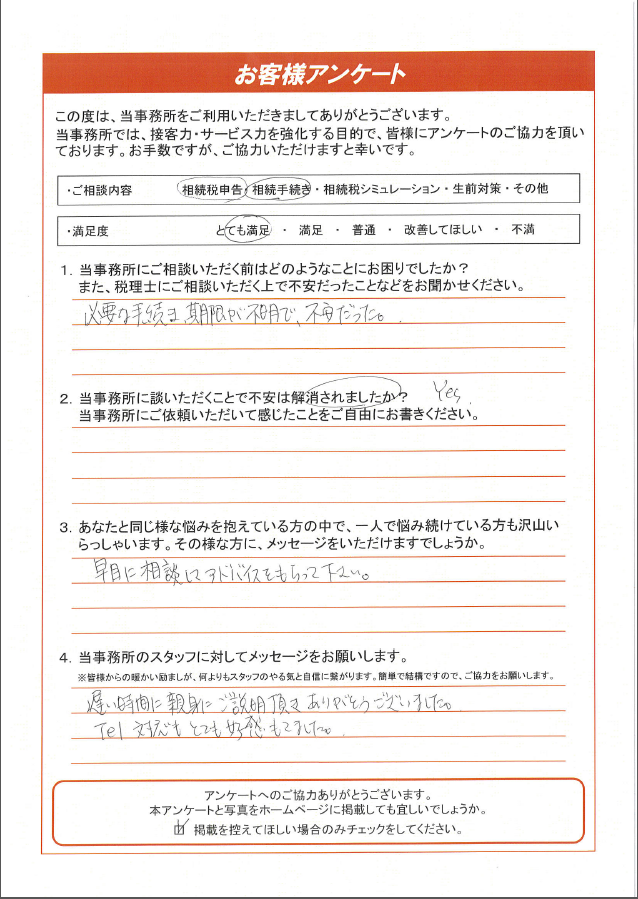 お客様アンケート
この度は、当事務所をご利用いただきましてありがとうございます。
当事務所では、接客力・サービス力を強化する目的で、皆様にアンケートのご協力を頂い
ております。お手数ですが、ご協力いただけますと幸いです。
・ご相談内容 相続税申告・相続手続き・相続税シミュレーション・生前対策・その他
・満足度 とても満足 ・ 満足 ・ 普通 ・ 改善してほしい ・ 不満
1. 当事務所にご相談いただく前はどのようなことにお困りでしたか？
また、税理士にご相談いただく上で不安だったことなどをお聞かせください。
必要な手続き、期限が不明で、不安だった。
2. 当事務所に談いただくことで不安は解消されましたか？ Yes.
当事務所にご依頼いただいて感じたことをご自由にお書きください。
3. あなたと同じ様な悩みを抱えている方の中で、一人で悩み続けている方も沢山い
らっしゃいます。その様な方に、メッセージをいただけますでしょうか。
早目に相談してアドバイスをもらって下さい。
4. 当事務所のスタッフに対してメッセージをお願いします。
※皆様からの暖かい励ましが、何よりもスタッフのやる気と自信に繋がります。簡単で結構ですので、ご協力をお願いします。
遅い時間に親身にご説明頂きありがとうございました。
Tel 対応もとても好感もてました。
アンケートへのご協力ありがとうございます。
本アンケートと写真をホームページに掲載しても宜しいでしょうか。
掲載を控えてほしい場合のみチェックをしてください。